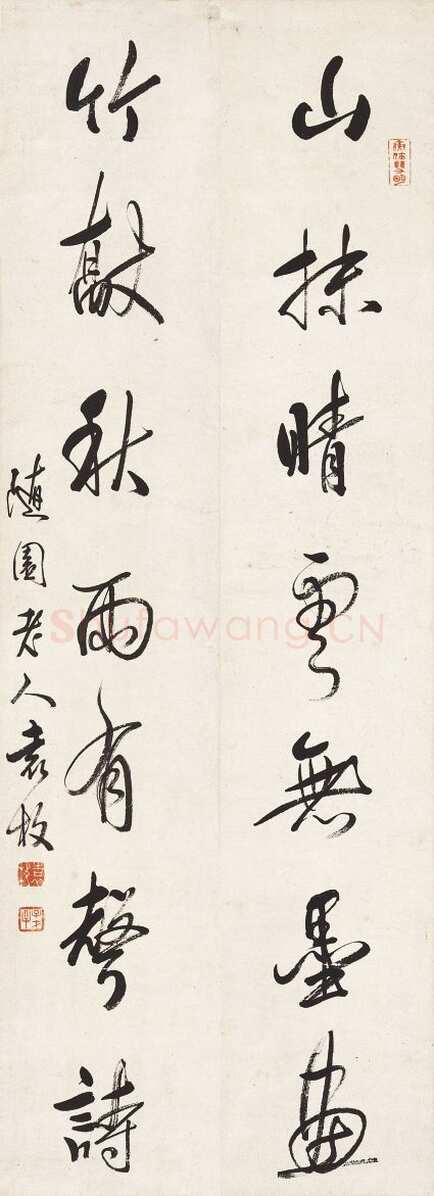 山抹晴雲無墨畫
竹敲秋雨有聲詩
隨園老人袁枚
Shufawang.CN